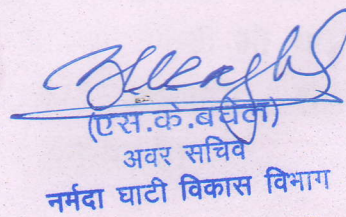 (एस.के.बघेल)
अवर सचिव
नर्मदा घाटी विकास विभाग